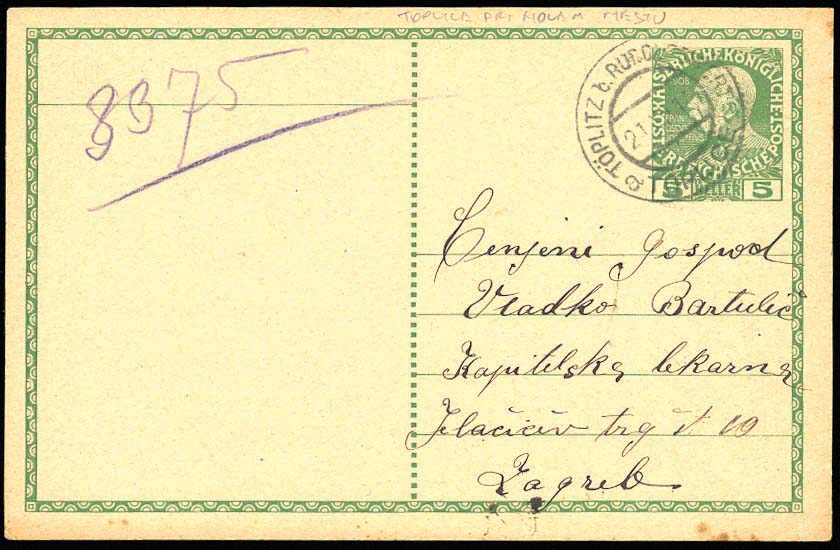 TOPLICE PRI NOVEM MESTU
8375
TÖPLITZ b. RUDOLFSWERT
21
KAISERLICHE KÖNIGLICHE
1908
5 HELLER 5
Cenjeni Gospod
Vladko Bartulić
Kapitelska lekarna
Jelačićev trg št. 19
Zagreb